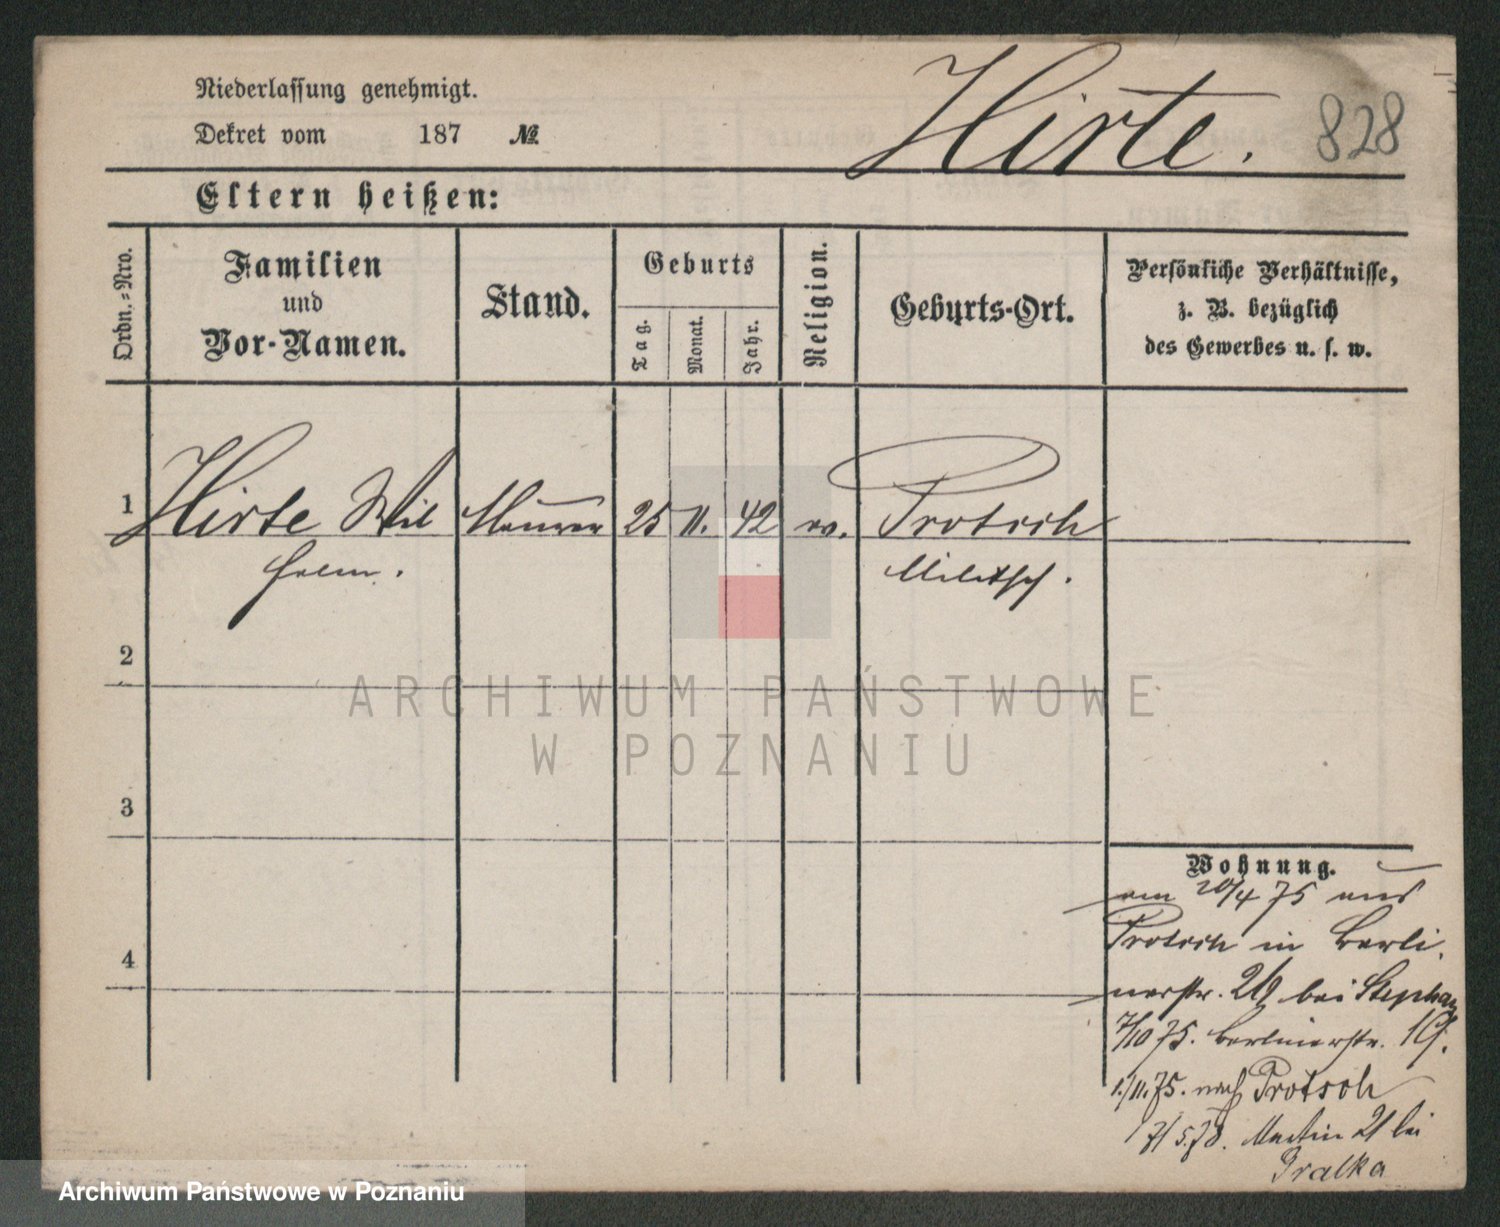 Niederlassung genehmigt.
Dekret vom 187 №
Hirte.
828
Eltern heißen:
Ordn.-Nro.
Familien
und
Vor-Namen.
Stand.
Geburts
Tag.
Monat.
Jahr.
Religion.
Geburts-Ort.
Persönliche Verhältnisse,
z. B. bezüglich
des Gewerbes u. s. w.
1 Hirte Wil Maurer 25 11. 42 ev. Protsch
helm. Militsch.
2
ARCHIWUM PAŃSTWOWE
W POZNANIU
3
4
Wohnung.
am 20/4 75 aus
Protsch in Berli
nerstr. 29 bei Stephan
7/10 75. Berlinerstr. 19.
1./11. 75. nach Protsch
17/5.78. Martin 21 bei
Gralka
Archiwum Państwowe w Poznaniu